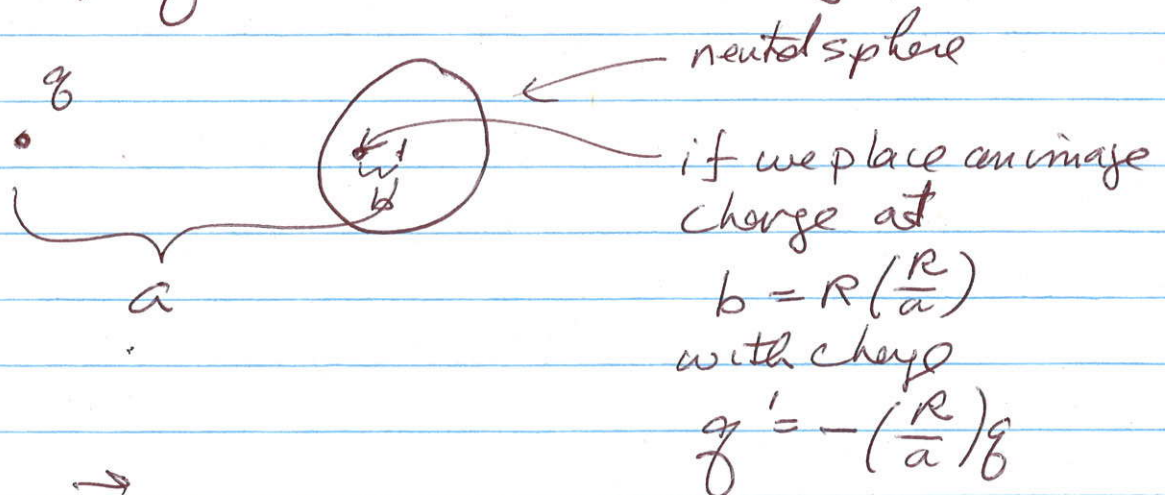 neutral sphere
q
if we place an image
charge at
b
a
b = R(R/a)
with charge
q' = -(R/a)q
→